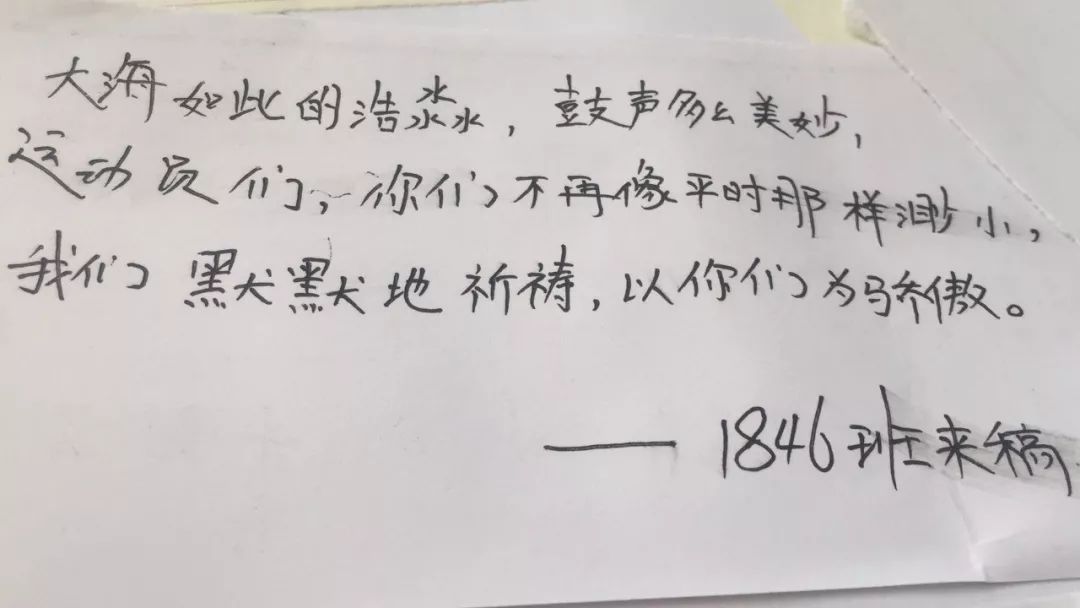 大海如此的浩淼，鼓声多么美妙，
运动员们，你们不再像平时那样渺小，
我们默默地祈祷，以你们为骄傲。
—— 1846班来稿